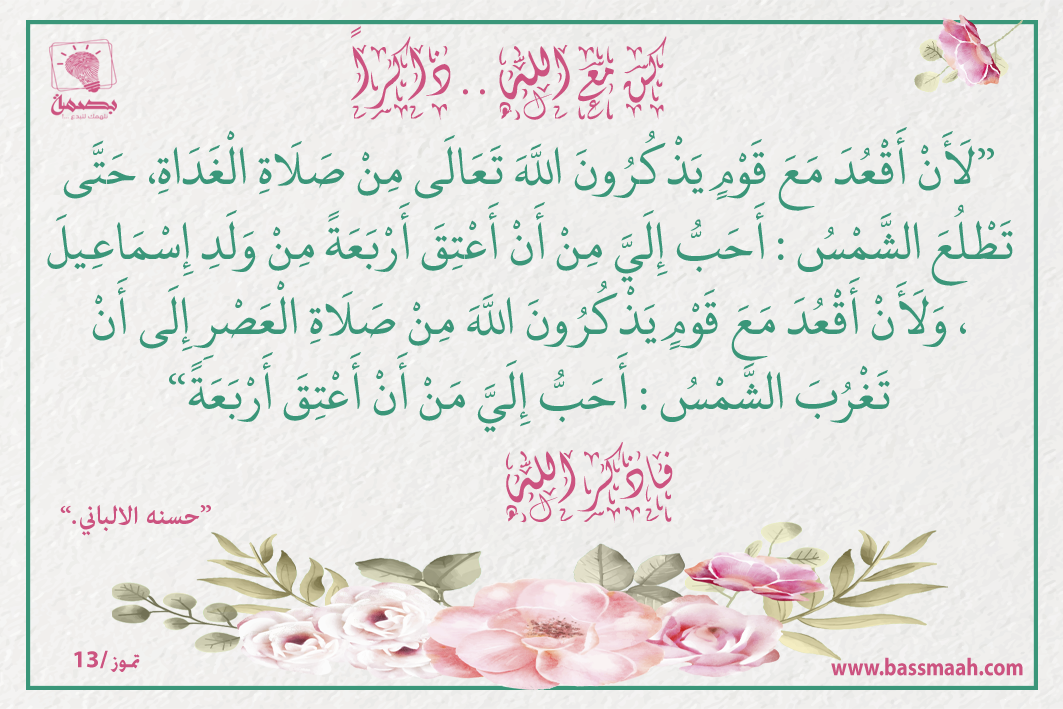 كن مع الله .. ذاكراً
بصمة
نلهمك لتبدع ...
”لَأَنْ أَقْعُدَ مَعَ قَوْمٍ يَذْكُرُونَ اللَّهَ تَعَالَى مِنْ صَلَاةِ الْغَدَاةِ، حَتَّى
تَطْلُعَ الشَّمْسُ : أَحَبُّ إِلَيَّ مِنْ أَنْ أَعْتِقَ أَرْبَعَةً مِنْ وَلَدِ إِسْمَاعِيلَ
، وَلَأَنْ أَقْعُدَ مَعَ قَوْمٍ يَذْكُرُونَ اللَّهَ مِنْ صَلَاةِ الْعَصْرِ إِلَى أَنْ
تَغْرُبَ الشَّمْسُ : أَحَبُّ إِلَيَّ مَنْ أَنْ أَعْتِقَ أَرْبَعَةً“
فاذكر الله
”حسنه الالباني.“
تموز /13
www.bassmaah.com